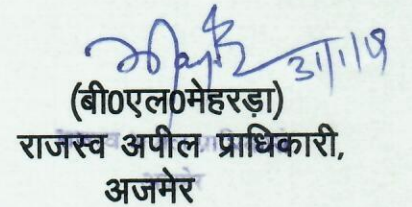 31/1/19
(बी0एल0मेहरड़ा)
राजस्व अपील प्राधिकारी,
अजमेर